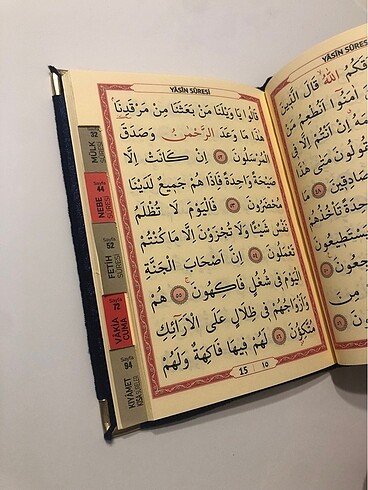 YÂSÎN SÛRESİ
قَالُوا يَا وَيْلَنَا مَنْ بَعَثَنَا مِنْ مَرْقَدِنَا
هٰذَا مَا وَعَدَ الرَّحْمٰنُ وَصَدَقَ
الْمُرْسَلُونَ ﴿٥٢﴾ اِنْ كَانَتْ اِلَّا
صَيْحَةً وَاحِدَةً فَاِذَا هُمْ جَمِيعٌ لَدَيْنَا
مُحْضَرُونَ ﴿٥٣﴾ فَالْيَوْمَ لَا تُظْلَمُ
نَفْسٌ شَيْـًٔا وَلَا تُجْزَوْنَ اِلَّا مَا كُنْتُمْ
تَعْمَلُونَ ﴿٥٤﴾ اِنَّ اَصْحَابَ الْجَنَّةِ
الْيَوْمَ فِي شُغُلٍ فَاكِهُونَ ﴿٥٥﴾ هُمْ
وَاَزْوَاجُهُمْ فِي ظِلَالٍ عَلَى الْاَرَٓائِكِ
مُتَّكِؤُ۫نَ ﴿٥٦﴾ لَهُمْ فِيهَا فَاكِهَةٌ وَلَهُمْ
15 ١٥
Sayfa 32
MÜLK SÛRESİ
Sayfa 44
NEBE SÛRESİ
Sayfa 52
FETİH SÛRESİ
Sayfa 72
VÂKIA CUMA
Sayfa 94
KIYÂMET KISA SÛRELER
YÂSÎN SÛRESİ
اللّٰهُ قَالَ الَّذِينَ
اٰمَنُٓوا اَنُطْعِمُ مَنْ
اِنْ اَنْتُمْ اِلَّا فِي
صَادِقِينَ ﴿٤٨﴾